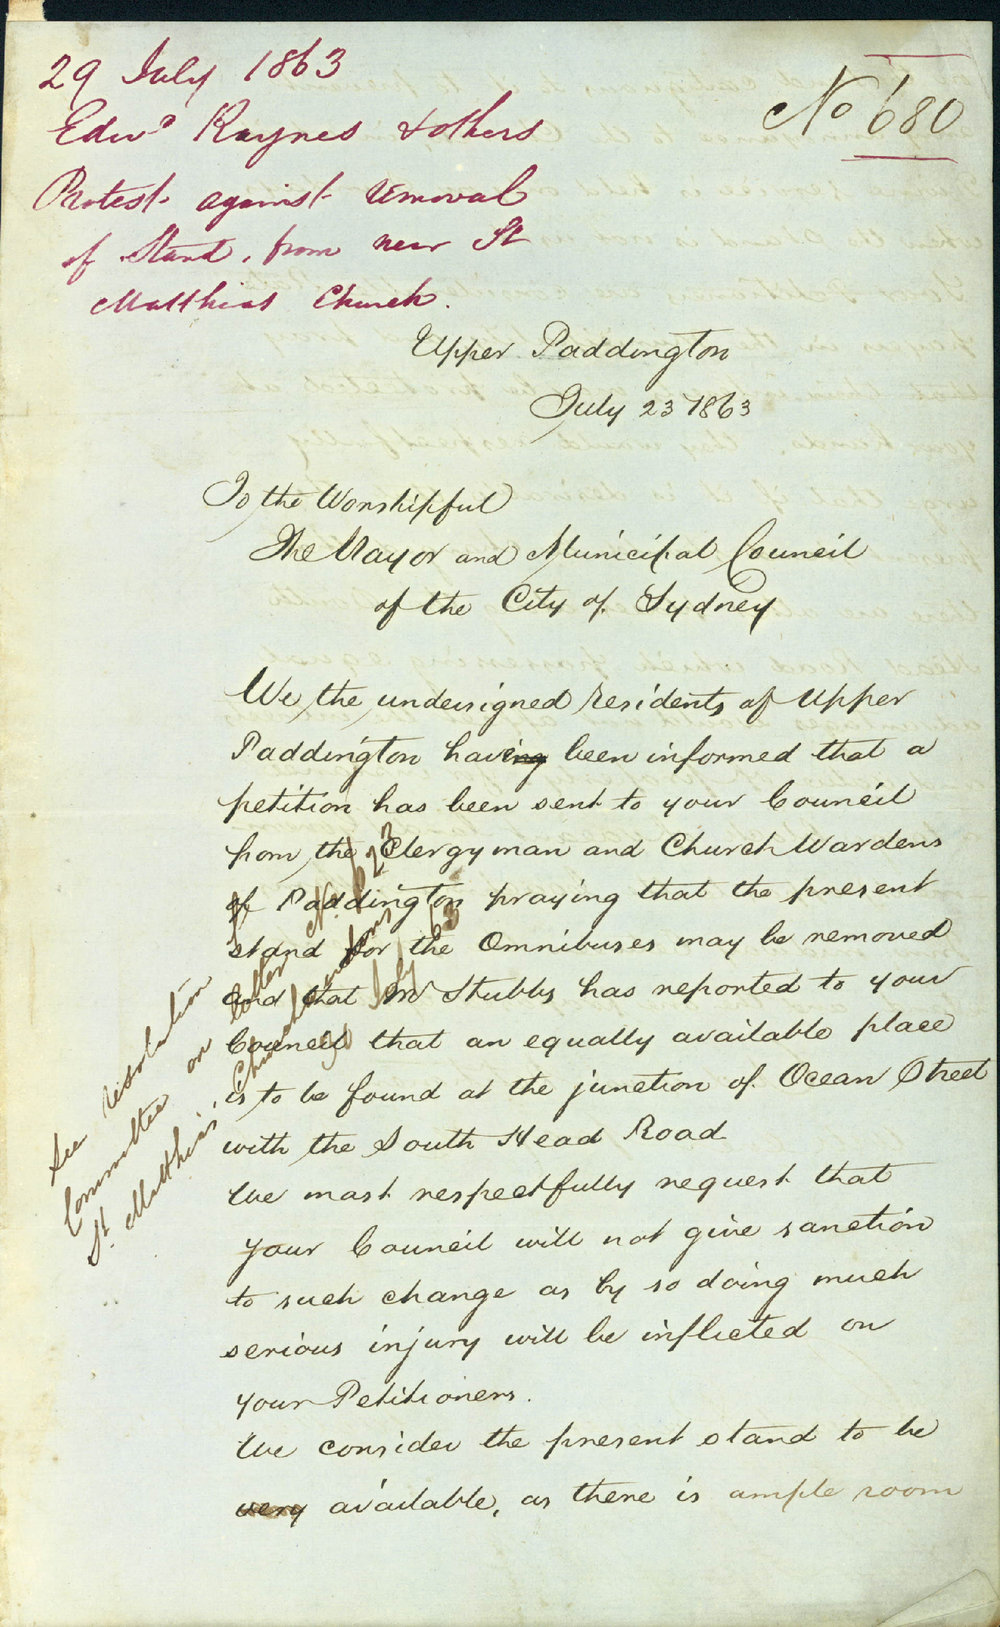 29 July 1863
Edwd Raynes & others
Protest against removal
of Stand, from near St
Matthias Church.
No 680
Upper Paddington
July 23 1863
To the Worshipful
The Mayor and Municipal Council
of the City of Sydney
We the undersigned residents of Upper
Paddington having been informed that a
petition has been sent to your Council
from the Clergyman and Church Wardens
of Paddington praying that the present
stand for the Omnibuses may be removed
and that Mr Stubbs has reported to your
Council that an equally available place
is to be found at the junction of Ocean Street
with the South Head Road
We most respectfully request that
your Council will not give sanction
to such change as by so doing much
serious injury will be inflicted on
your Petitioners.
We consider the present stand to be
very available, as there is ample room
See resolution of
Committee on letter No 623
St. Matthias, Churchwardens
July 63